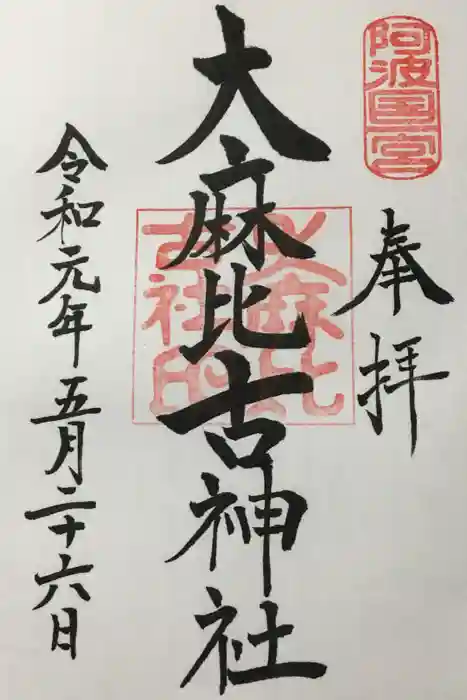 阿波国一宮
奉拝
大麻比古神社
大麻比古社印
令和元年五月二十六日